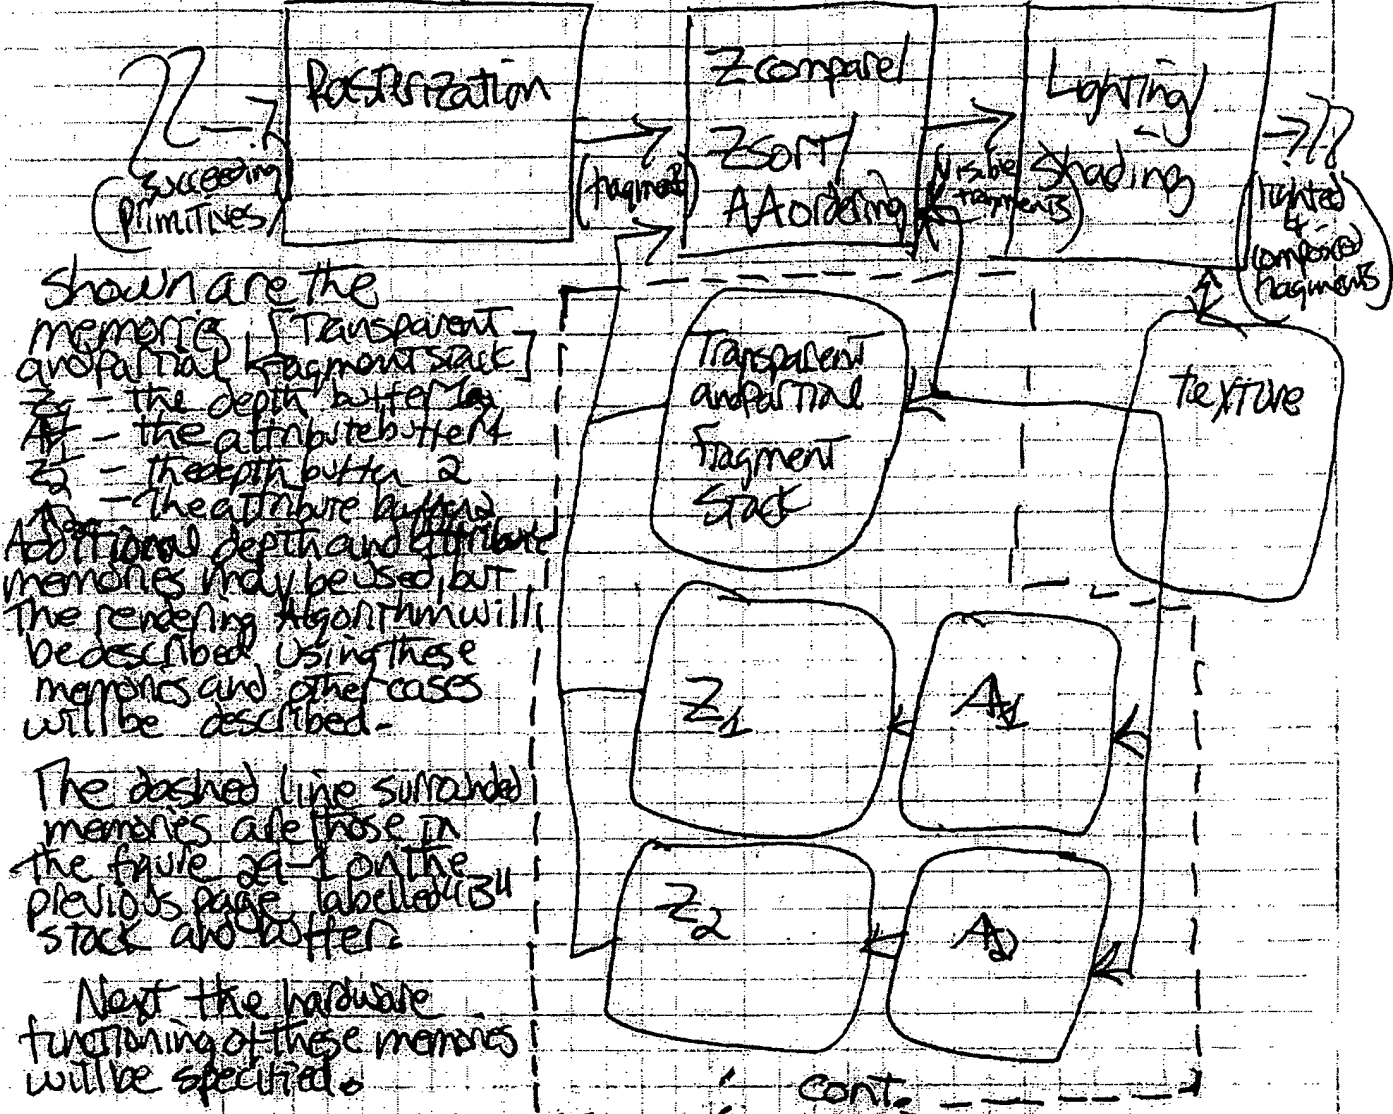 Rasterization
Zcompare/
Zsort/
AA ordering
Lighting/
Shading
(succeeding
primitives)
(fragments)
(visible
fragments)
(lighted
&
composited
fragments)
Shown are the
memories [Transparent
and partial fragment stack]
Z1 - the depth buffer 1
A1 - the attribute buffer 1
Z2 - the depth buffer 2
A2 - the attribute buffer 2
Additional depth and attribute
memories may be used, but
the rendering Algorithm will
be described using these
memories and other cases
will be described.
The dashed line surrounded
memories are those in
the figure 29-1 on the
previous page labelled "B"
stack and buffer.
Next the hardware
functioning of these memories
will be specified.
Transparent
and partial
fragment
stack
Texture
Z1
A1
Z2
A2
cont.